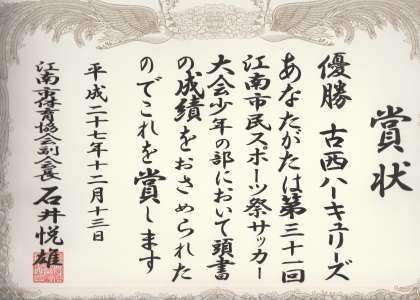 賞状
優勝 古西ハーキュリーズ
あなたがたは第三十一回
江南市民スポーツ祭サッカー
大会少年の部において頭書
の成績をおさめられた
のでこれを賞します
平成二十七年十二月十三日
江南市体育協会副会長 石井悦雄